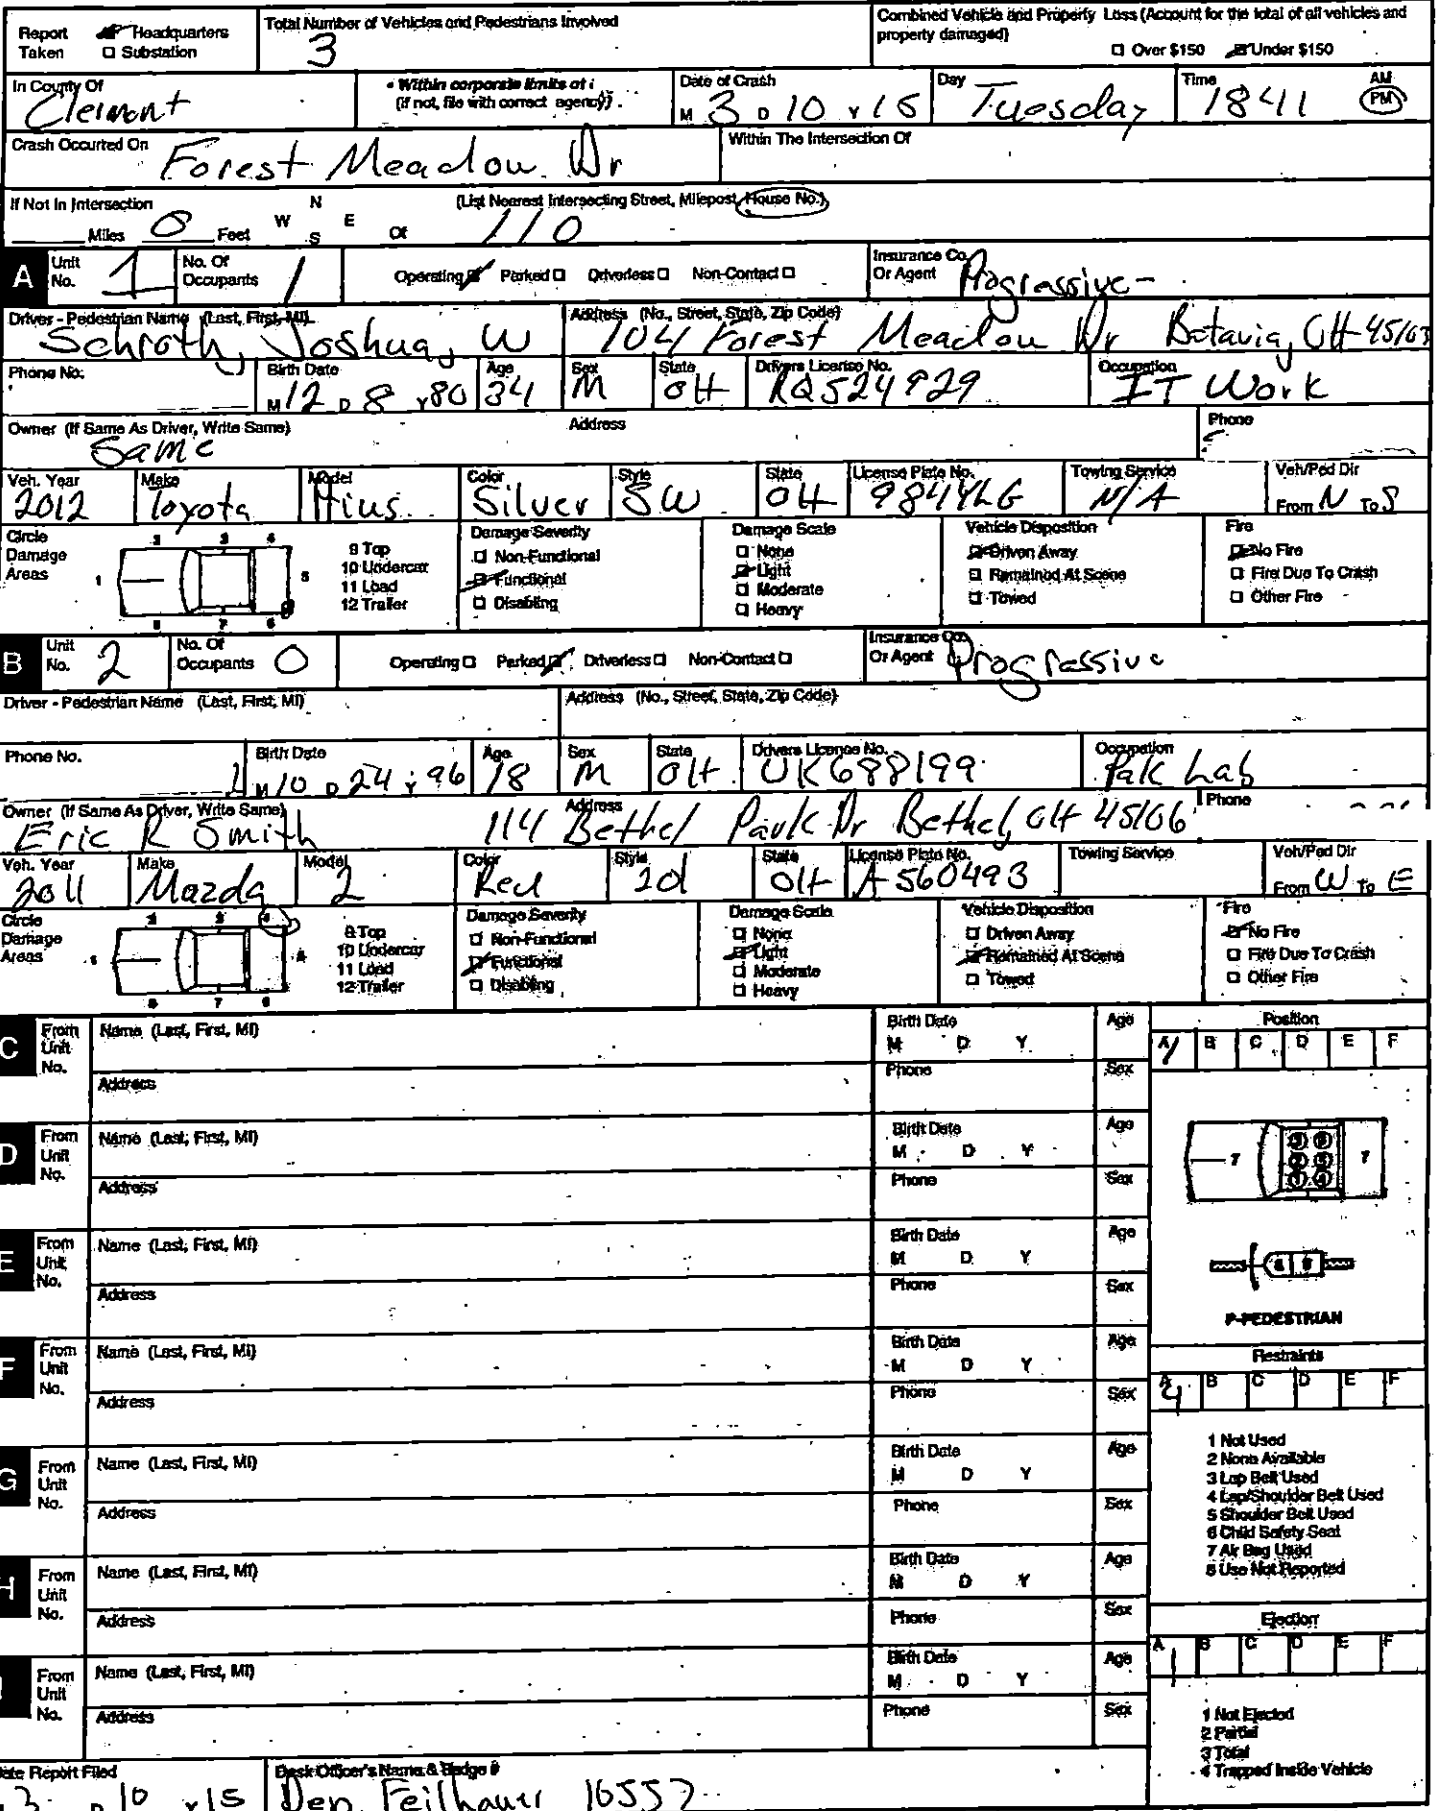 Report Taken Headquarters Substation
Total Number of Vehicles and Pedestrians Involved 3
Combined Vehicle and Property Loss (Account for the total of all vehicles and property damaged) Over $150 Under $150
In County Of Clermont
Within corporate limits of (if not, file with correct agency)
Date of Crash M 3 D 10 Y 15 Day Tuesday Time 1841 AM PM
Crash Occurred On Forest Meadow Dr
Within The Intersection Of
If Not In Intersection Miles 0 Feet N W E S Of (List Nearest Intersecting Street, Milepost, House No.) 110
A Unit No. 1 No. Of Occupants 1 Operating Parked Driverless Non-Contact Insurance Co. Or Agent Progressive
Driver - Pedestrian Name (Last, First, MI) Schroth, Joshua, W Address (No., Street, State, Zip Code) 104 Forest Meadow Dr Batavia, OH 45103
Phone No. Birth Date M 12 D 8 Y 80 Age 34 Sex M State OH Drivers License No. RQ524929 Occupation IT Work
Owner (If Same As Driver, Write Same) Same Address Phone
Veh. Year 2012 Make Toyota Model Prius Color Silver Style SW State OH License Plate No. 984YLG Towing Service N/A Veh/Ped Dir From N To S
Circle Damage Areas 1 2 3 4 5 6 7 8 9 Top 10 Undercar 11 Load 12 Trailer
Damage Severity Non-Functional Functional Disabling
Damage Scale None Light Moderate Heavy
Vehicle Disposition Driven Away Remained At Scene Towed
Fire No Fire Fire Due To Crash Other Fire
B Unit No. 2 No. Of Occupants 0 Operating Parked Driverless Non-Contact Insurance Co. Or Agent Progressive
Driver - Pedestrian Name (Last, First, MI) Address (No., Street, State, Zip Code)
Phone No. Birth Date M 10 D 24 Y 96 Age 18 Sex M State OH Drivers License No. UK688199 Occupation Pak Lab
Owner (If Same As Driver, Write Same) Eric R Smith Address 114 Bethel Park Dr Bethel, OH 45106 Phone
Veh. Year 2011 Make Mazda Model 2 Color Red Style 2d State OH License Plate No. A560493 Towing Service Veh/Ped Dir From W To E
Circle Damage Areas 9 Top 10 Undercar 11 Load 12 Trailer
Damage Severity Non-Functional Functional Disabling
Damage Scale None Light Moderate Heavy
Vehicle Disposition Driven Away Remained At Scene Towed
Fire No Fire Fire Due To Crash Other Fire
C From Unit No. Name (Last, First, MI) Birth Date M D Y Age
Address Phone Sex
Position A 1 B C D E F
D From Unit No. Name (Last, First, MI) Birth Date M D Y Age
Address Phone Sex
E From Unit No. Name (Last, First, MI) Birth Date M D Y Age
Address Phone Sex
P-PEDESTRIAN
F From Unit No. Name (Last, First, MI) Birth Date M D Y Age
Address Phone Sex
Restraints A 4 B C D E F
1 Not Used
2 None Available
3 Lap Belt Used
4 Lap/Shoulder Belt Used
5 Shoulder Belt Used
6 Child Safety Seat
7 Air Bag Used
8 Use Not Reported
G From Unit No. Name (Last, First, MI) Birth Date M D Y Age
Address Phone Sex
H From Unit No. Name (Last, First, MI) Birth Date M D Y Age
Address Phone Sex
Ejection A 1 B C D E F
From Unit No. Name (Last, First, MI) Birth Date M D Y Age
Address Phone Sex
1 Not Ejected
2 Partial
3 Total
4 Trapped Inside Vehicle
Date Report Filed 3 D 10 Y 15 Desk Officer's Name & Badge # Dep. Feilhauer 16557